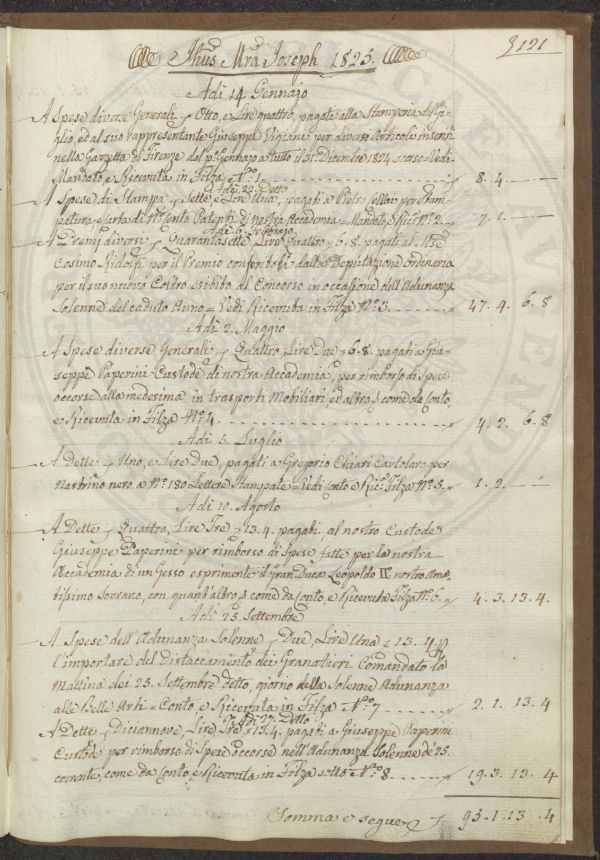 Jhus Mra Joseph 1825. 121
Adi 14 Gennajo
A Spese diverse Generali Otto, e Lire quattro, pagati alla Stamperia del Gi-
glio, ed al suo rappresentante Giuseppe Vignani per diversi Articoli inseriti
nella Gazzetta di Firenze dal pº Gennajo a tutto il 31. Dicembre 1824 scorso = Vedi
Mandato e Ricevuta in Filza Nº 1. 8. 4
Adi 22. Detto
A Spese di Stampa Sette e Lire Una, pagati a Pietro per Stam-
patura e carta di Nº Cento Patenti di nostra Accademia = Mandato, e Ricª Nº 2. 7. 1.
Adi 6. Febbrajo
A Premj diversi Quarantasette Lire Quattro 6. 8 pagati al
Cosimo Ridolfi per il Premio conferitoli dalla Deputazione ordinaria
per il suo nuovo Coltro esibito al Concorso in occasione dell'Adunanza
Solenne del caduto Anno = Vedi Ricevuta in Filza Nº 3. 47. 4. 6. 8
Adi 2. Maggio
A Spese diverse Generali Quattro, Lire Due 6. 8. pagati a Giu-
seppe Paperini Custode di nostra Accademia, per rimborso di Spese
occorse alla medesima in trasporti Mobiliari, ed altro, come da Conto,
e Ricevuta in Filza Nº 4 4. 2. 6. 8
Adi 5. Luglio
A Dette Uno, e Lire Due, pagati a Gregorio Chiari Cartolaro per
Nastrino nero a Nº 180 Lettere Stampate = Vedi Conto e Ricª Filza Nº 5. 1. 2.
Adi 10. Agosto
A Dette Quattro, Lire Tre 13. 4. pagati al nostro Custode
Giuseppe Paperini per rimborso di Spese fatte per la nostra
Accademia di un Gesso esprimente il Gran Duca Leopoldo II nostro Ama-
tissimo Sovrano, con quant'altro, come da Conto, e Ricevuta Filza Nº 6. 4. 3. 13. 4.
Adi 25 Settembre
A Spese dell'Adunanza Solenne Due, Lire Una 13. 4
l'importare del Distaccamento dei Granatieri Comandato la
Mattina dei 25. Settembre detto, giorno della Solenne Adunanza
alle Belle Arti = Conto, e Ricevuta in Filza Nº 7 2. 1. 13. 4
Adi 27. Detto
A Dette Diciannove, Lire Tre 13. 4. pagati a Giuseppe Paperini
Custode per rimborso di Spese occorse nell'Adunanza Solenne de' 25.
corrente, come da Conto, e Ricevuta in Filza sotto Nº 8. 19. 3. 13. 4
Somma e segue 95. 1. 13. 4